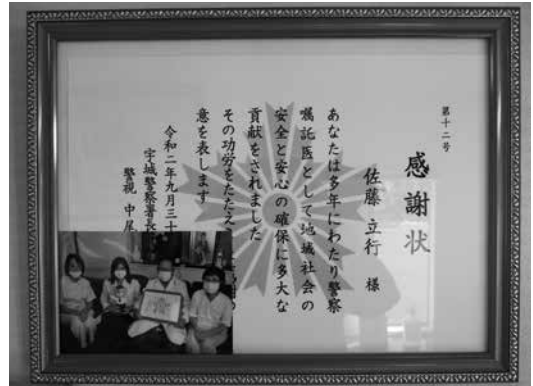 第十二号
感謝状
佐藤立行 様
あなたは多年にわたり警察
嘱託医として地域社会の
安全と安心の確保に多大な
貢献をされました
その功労をたたえ
意を表します
令和二年九月三十
宇城警察署長
警視 中尾